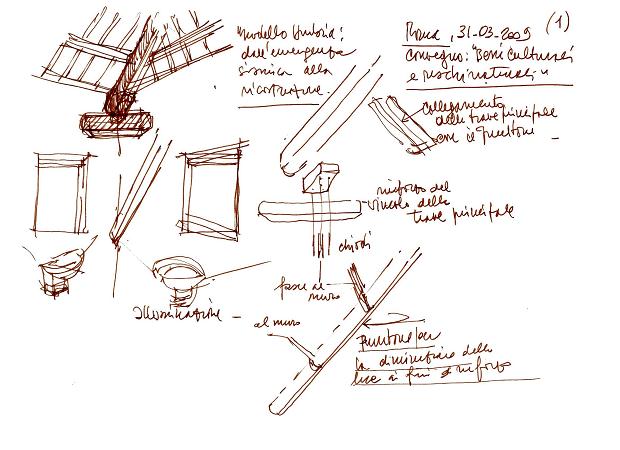 "modello Umbria:
dall'emergenza
sismica alla
ricostruzione.
Roma, 31-03-2009 (1)
Convegno: "Beni culturali
e rischi naturali"
collegamento
della trave principale
con il puntone -
rinforzo del
vincolo della
trave principale
chiodi
al muro
Illuminazione -
al muro
Puntone per
la diminuzione della
luce ai fini di rinforzo